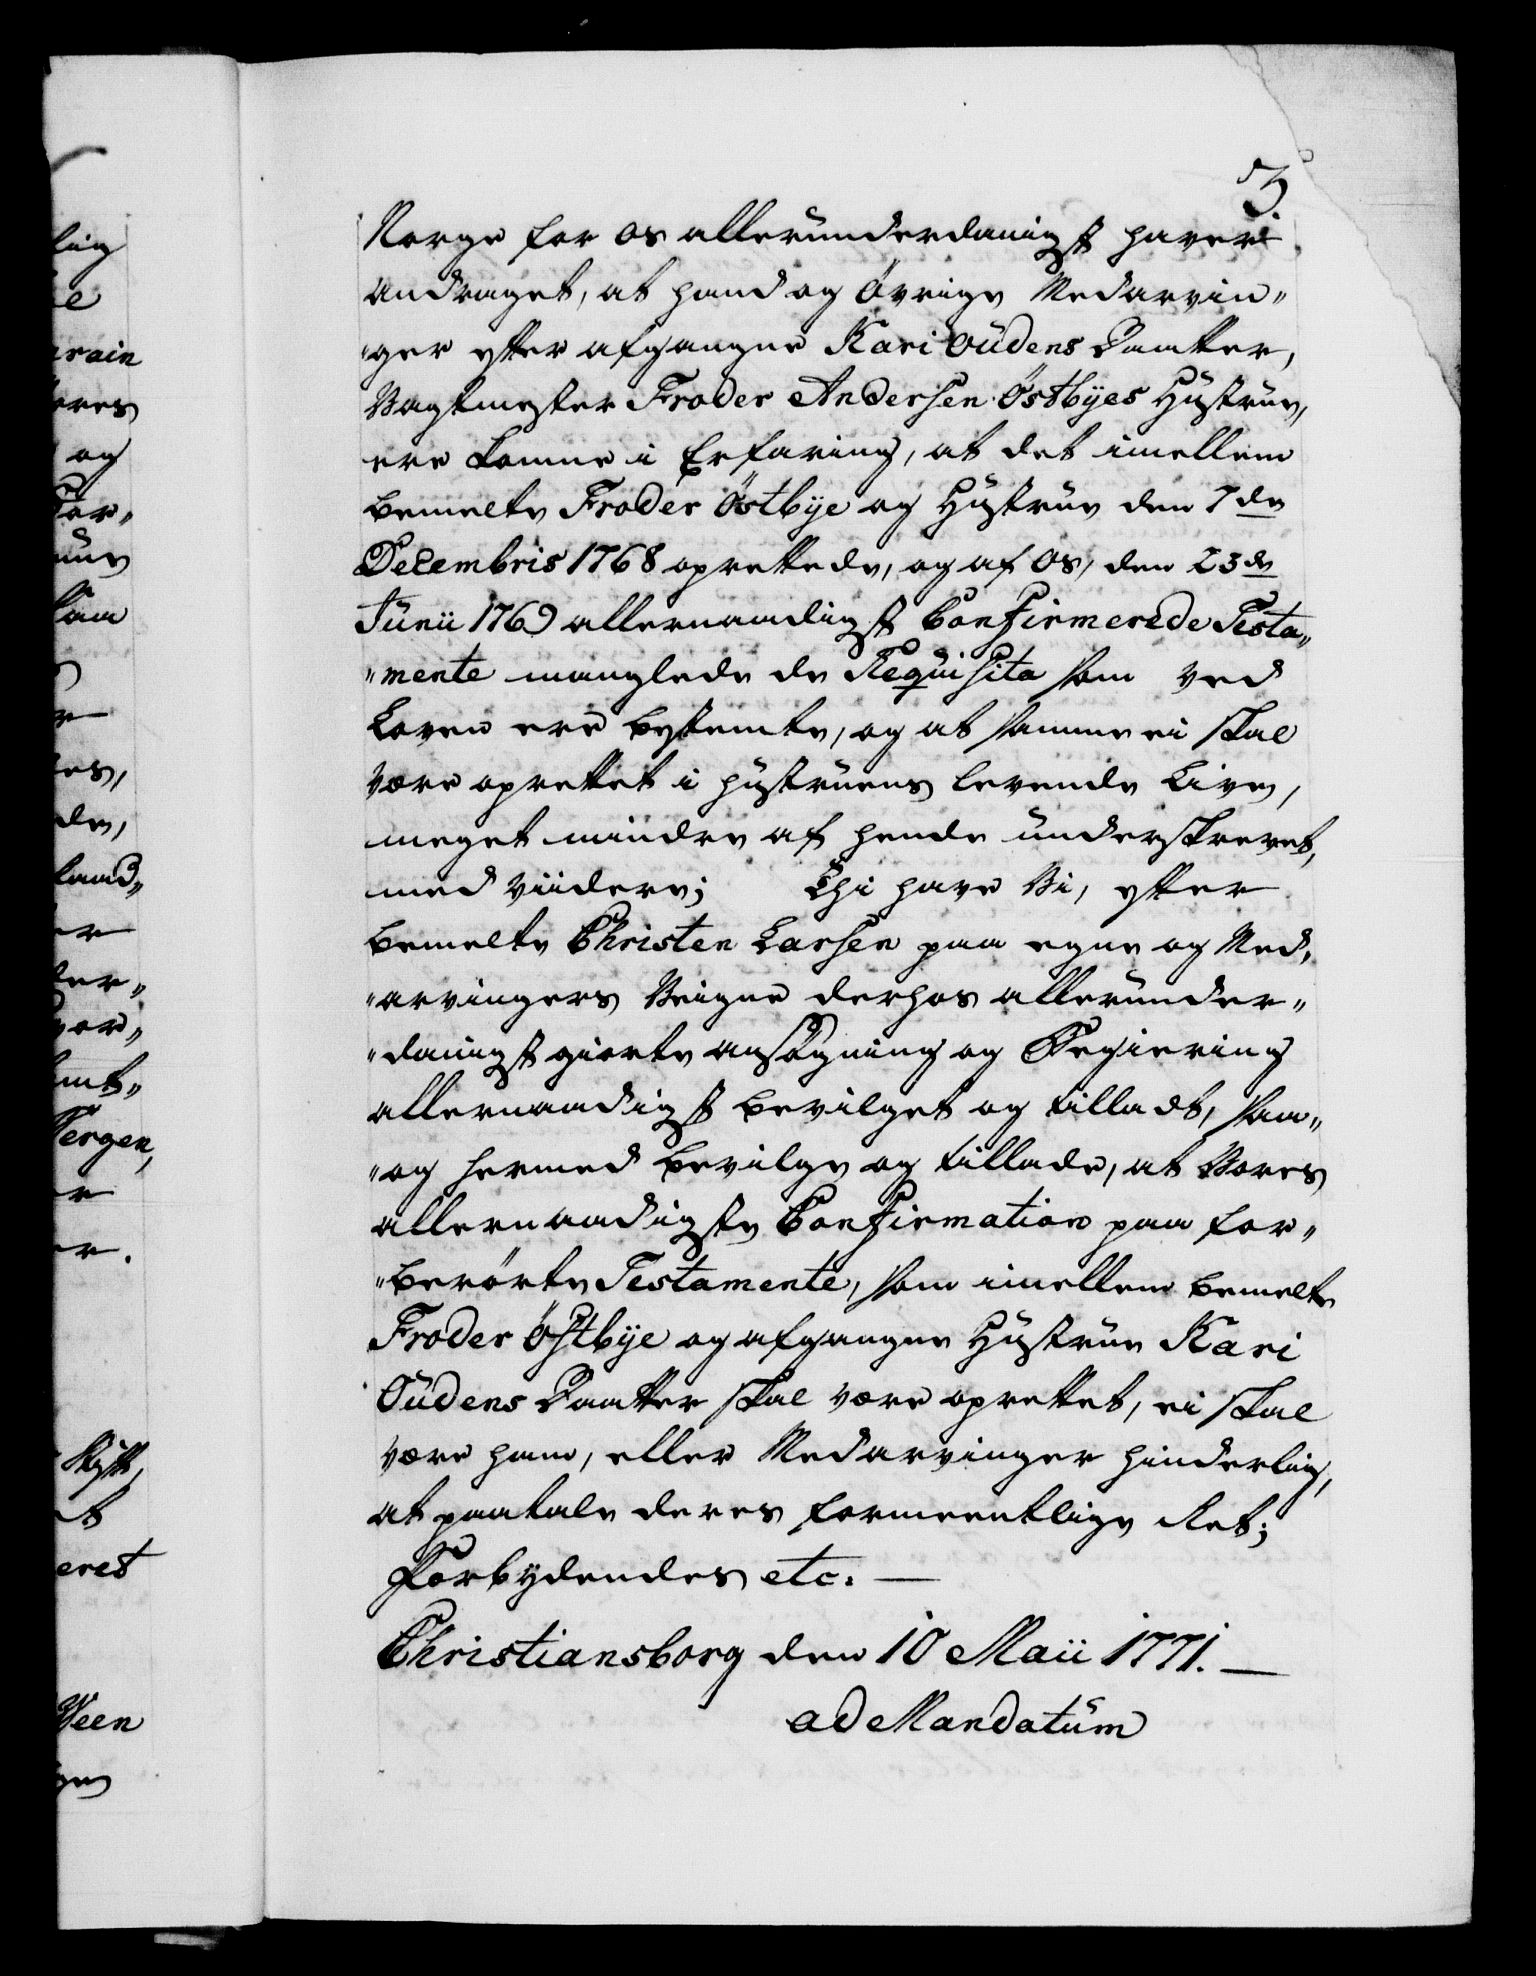 3.
Norge for os allerunderdanigst haver
andraget, at hand og Øvrige Medarvin„
„ger efter afgangne Kari Oüdens Daatter,
Vagtmester Froder Andersen Østbÿes Hustrue,
ere komne i Erfaring, at det imellem
bemelte Froder Østbÿe og Hustrue den 7de
Decembris 1768 oprettede, og af os, den 23de
Junii 1769 allernaadigst Confirmerede Testa„
„mente manglede de Requisita som ved
Loven ere bestemte, og at samme ei skal
være oprettet i hustruens levende Live,
meget mindre af hende underskrevet,
med viidere; Thi have Vi, efter
bemelte Christen Larsen paa egne og Med„
„arvingers Veigne derhos allerunder„
„danigst giorte ansøgning og Begiering
allernaadigst bevilget og tilladt, saa„
„og hermed bevilge og tillade, at Vores
allernaadigste Confirmation paa for„
„berørte Testamente, som imellem bemelte
Froder Østbÿe og afgangne Hustrue Kari
Oüdens Daatter skal være oprettet, ei skal
være ham, eller Medarvinger hinderlig,
at paatale deres formeentlige Ret;
Forbydendes etc. —
Christiansborg den 10 Maii 1771. —
ad Mandatüm
lig
rain
ores
og
For„
saa
es,
de,
land„
er
der„
for„
Bergen,
er
er.
Skift,
et
eret
Ween